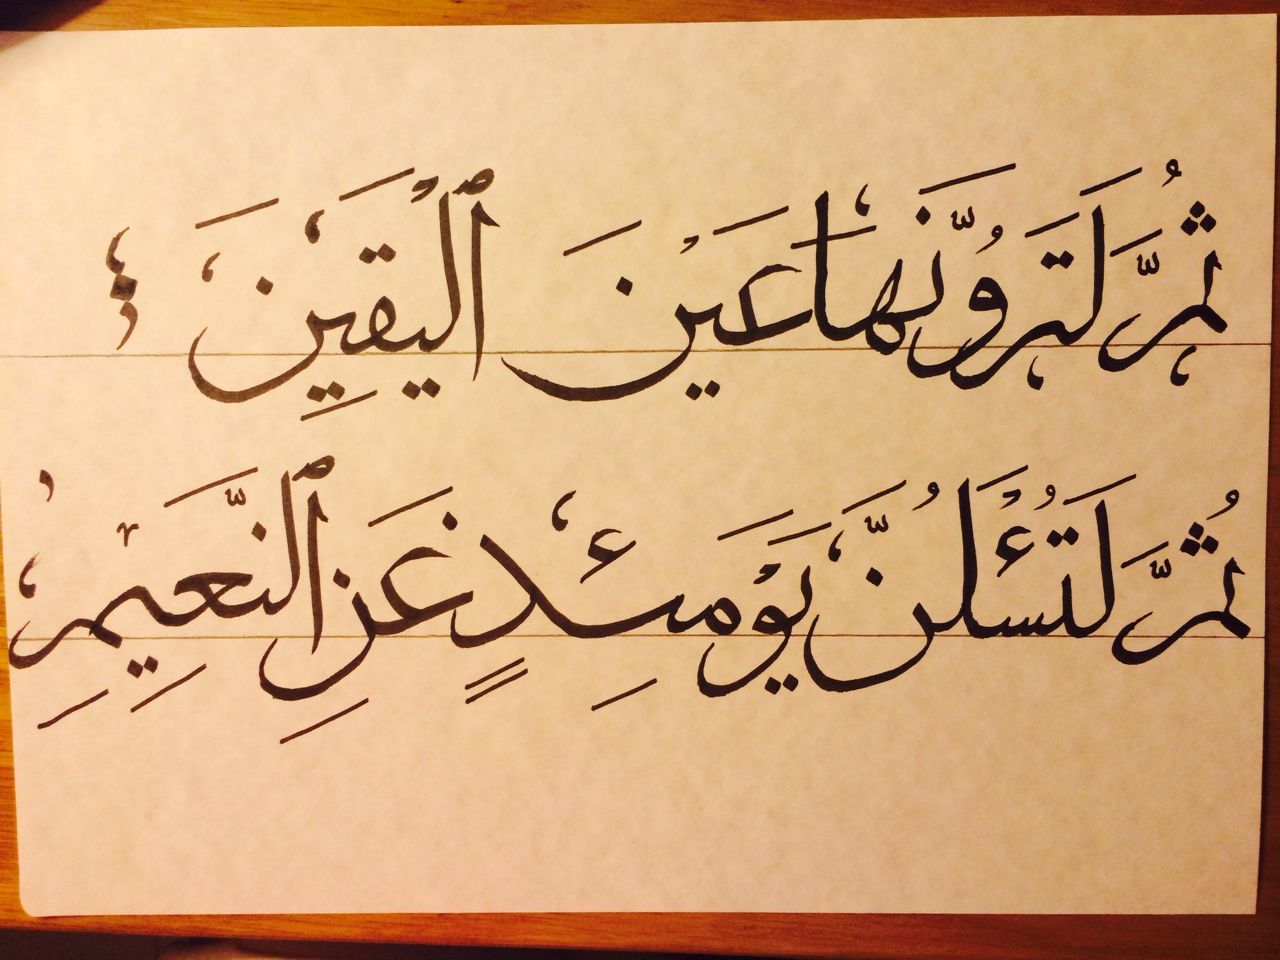 ثُمَّ لَتَرَوُنَّهَا عَيْنَ ٱلْيَقِينَ
ثُمَّ لَتُسْـَٔلُنَّ يَوْمَئِذٍ عَنِ ٱلنَّعِيمِ